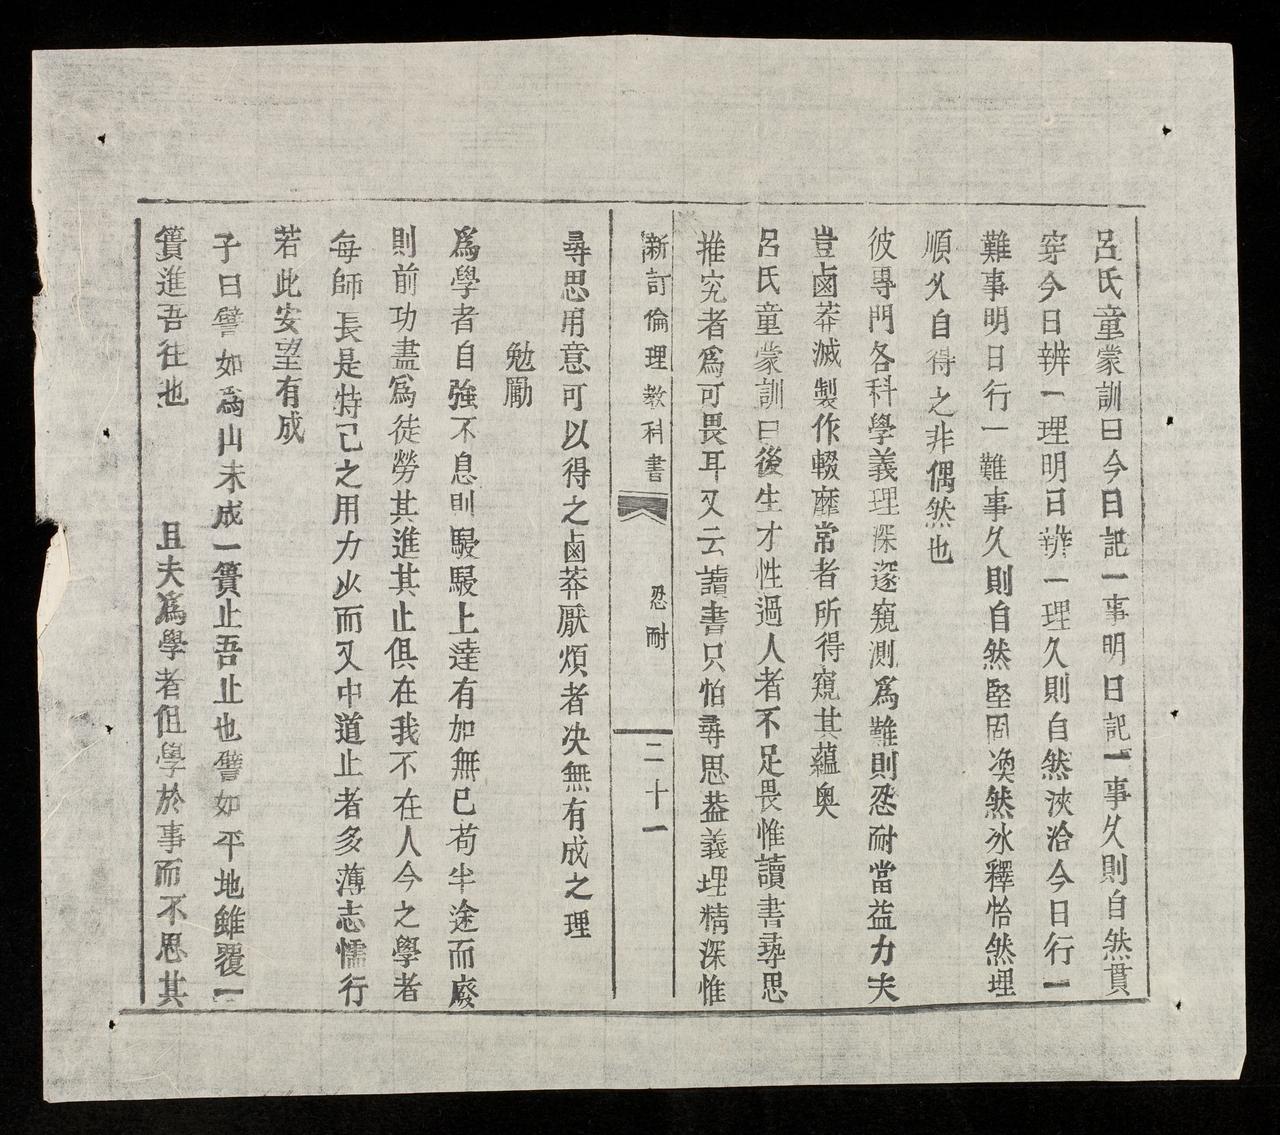 呂氏童蒙訓曰今日記一事明日記一事久則自然貫
穿今日辨一理明日辨一理久則自然浹洽今日行一
難事明日行一難事久則自然堅固渙然冰釋怡然理
順久自得之非偶然也
彼專門各科學義理深邃窺測爲難則忍耐當益力夫
豈鹵莽滅製作輟靡常者所得窺其蘊奥
呂氏童蒙訓曰後生才性過人者不足畏惟讀書尋思
推究者爲可畏耳又云讀書只怕尋思葢義理精深惟
新訂倫理教科書 忍耐 二十一
尋思用意可以得之鹵莽厭煩者决無有成之理
勉勵
爲學者自強不息則駸駸上達有加無已苟半途而廢
則前功盡爲徒勞其進其止俱在我不在人今之學者
每師長是特己之用力少而又中道止者多薄志懦行
若此安望有成
子曰譬如爲山未成一簣止吾止也譬如平地雖覆一
簣進吾往也 且夫爲學者但學於事而不思其